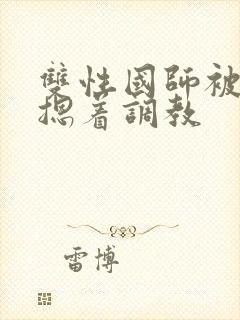 雙性國師被
摁着調教
雷博